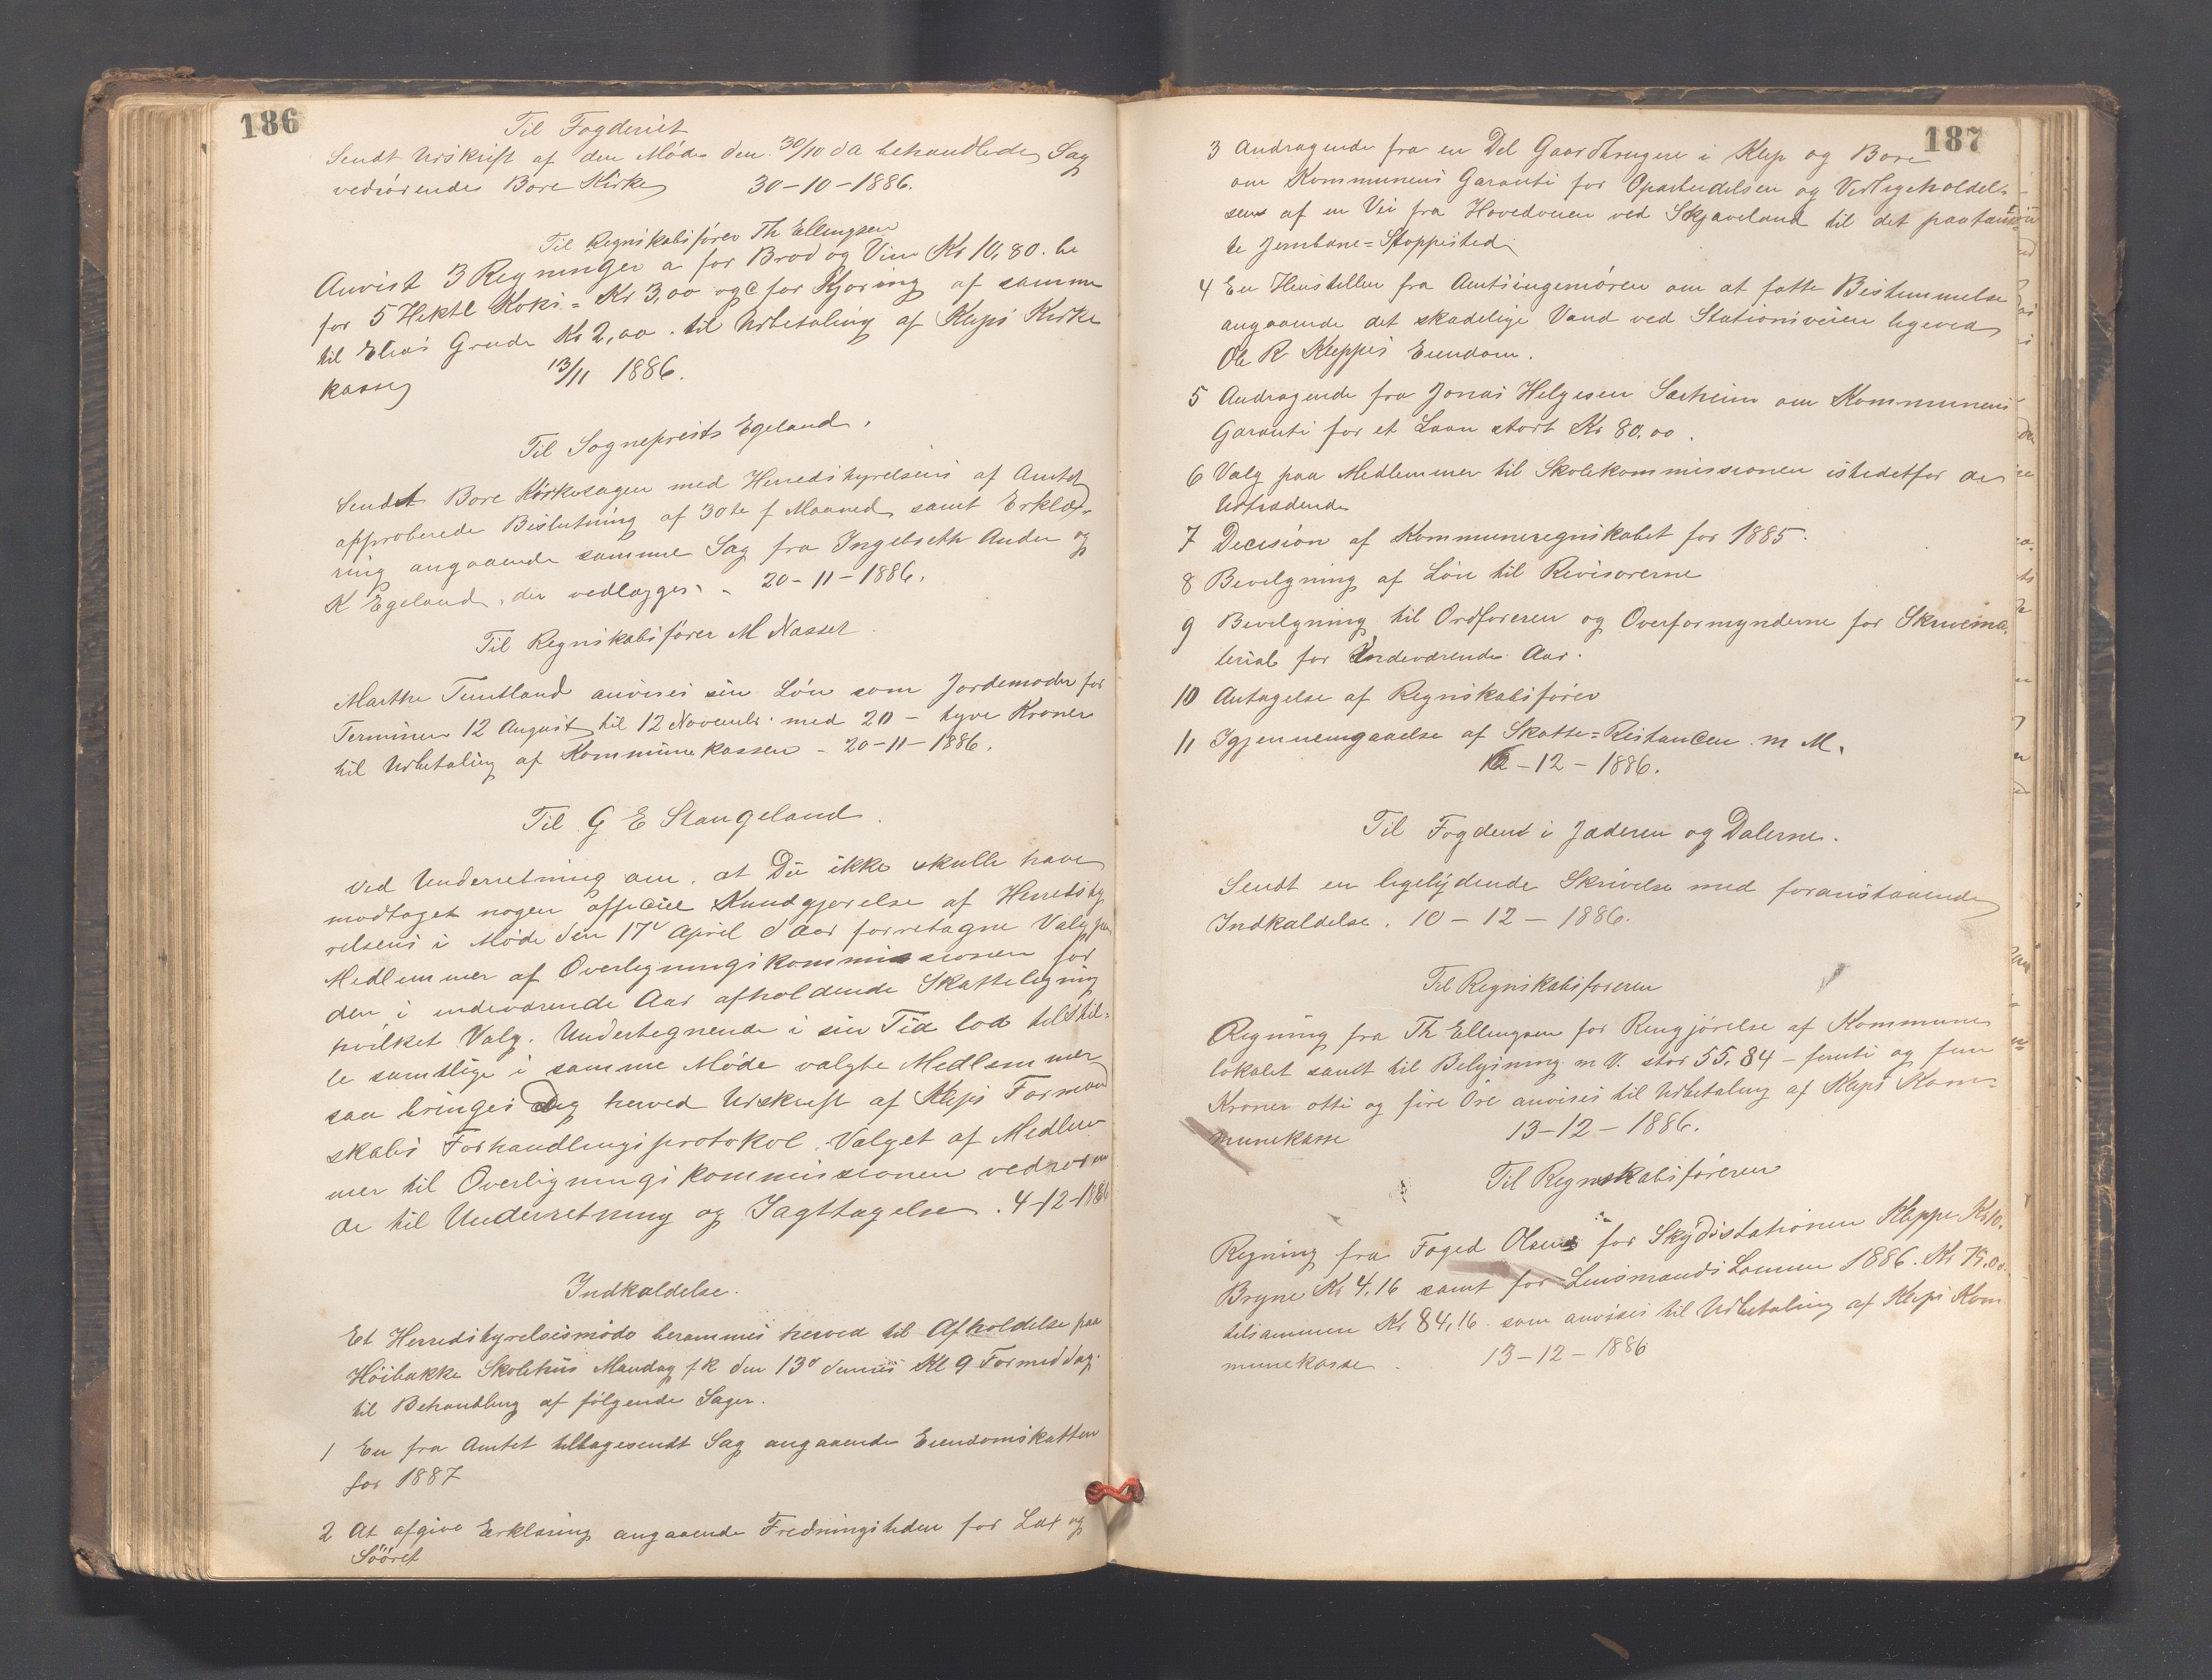 186
Til Fogderiet
Sendt Udskrift af den Møde den 30/10 d a behandlede Sag
vedrørende Bore Kirke 30-10-1886.
Til Regnskabsfører Th Ellingsen
Anvist 3 Regninger a for Brød og Vin Kr 10,80. b
for 5 Hektl Koks = Kr 3,00 og c for Kjøring af samme
til Elias Grude Kr 2,00. til Udbetaling af Kleps Kirke
kasse 13/11 1886.
Til Sogneprest Egeland.
Sendt Bore Kirkesagen med Herredstyrelsens af Amtet
approberede Beslutning af 30te f Maaned samt Erklæ-
ring angaaende samme Sag fra Ingebreth Anda og
K Egeland, der vedlægges. 20-11-1886.
Til Regnskabsfører M Nasset.
Marthe Tuntland anvises sin Løn som Jordemoder for
Terminen 12 August til 12 Novembr. med 20 - tyve Kroner
til Udbetaling af Kommunekassen - 20-11-1886.
Til G E Stangeland.
Ved Underretning om. at Du ikke skulle have
modtaget nogen officiel Kundgjørelse af Herredsty
relsens i Møde den 17de April d Aar foretagne Valg paa
Medlemmer af Overligningskommissionen for
den i indeværende Aar afholdende Skatteligning
hvilket Valg. Undertegnende i sin Tid lod tilstil-
le samtlige i samme Møde valgte Medlemmer
saa bringes Dig herved Udskrift af Kleps Formand
skabs Forhandlingsprotokol. Valget af Medlem
mer til Overligningskommissionen vedrøren
de til Underretning og Iagttagelse. 4-12-1886
Indkaldelse.
Et Herredstyrelsesmøde berammes herved til Afholdelse paa
Höibakke Skolehus Mandag f k den 13de dennes Kl 9 Formiddag
til Behandling af følgende Sager.
1 En fra Amtet tilbagesendt Sag angaaende Eiendomskatten
for 1887
2 At afgive Erklæring angaaende Fredningstiden for Lax og
Søöret
187
3 Andragende fra en Del Gaardbrugere i Klep og Bore
om Kommunens Garanti for Oparbeidelsen og Vedligeholdel-
sen af en Vei fra Hovedveien ved Skjæveland til det paatænk
te Jernbane=Stoppested.
4 En Henstillen fra Amtsingeniøren om at fatte Bestemmelse
angaaende det skadelige Vand ved Stationsveien ligeved
Ole R Kleppes Eiendom.
5 Andragende fra Jonas Helgesen Sørheim om Kommunens
Garanti for et Laan stort Kr 80,00.
6 Valg paa Medlemmer til Skolekommissionen istedetfor de
Udtrædende
7 Decision af Kommuneregnskabet for 1885.
8 Bevilgning af Løn til Revisorerne
9 Bevilgning til Ordføreren og Overformynderne for Skrivema
terial for Indeværende Aar.
10 Antagelse af Regnskabsfører
11 Igjennemgaaelse af Skatte=Restancen m M.
-12-1886.
Til Fogden i Jæderen og Dalerne.
Sendt en ligelydende Skrivelse med foranstaaende
Indkaldelse. 10-12-1886.
Til Regnskabsføreren
Regning fra Th Ellingsen for Rengjørelse af Kommune
lokalet samt til Belysning m V. stor 55,84 - femti og fem
Kroner otti og fire Öre anvises til Udbetaling af Kleps Kom-
munekasse 13-12-1886.
Til Regnskabsføreren
Regning fra Foged Olsen for Skydsstationen Kleppe Kr 10.
Bryne Kr 4,16 samt for Lensmands Lønnen 1886. Kr 70.00.
tilsammen Kr 84,16 som anvises til Udbetaling af Kleps Kom
munekasse. 13-12-1886